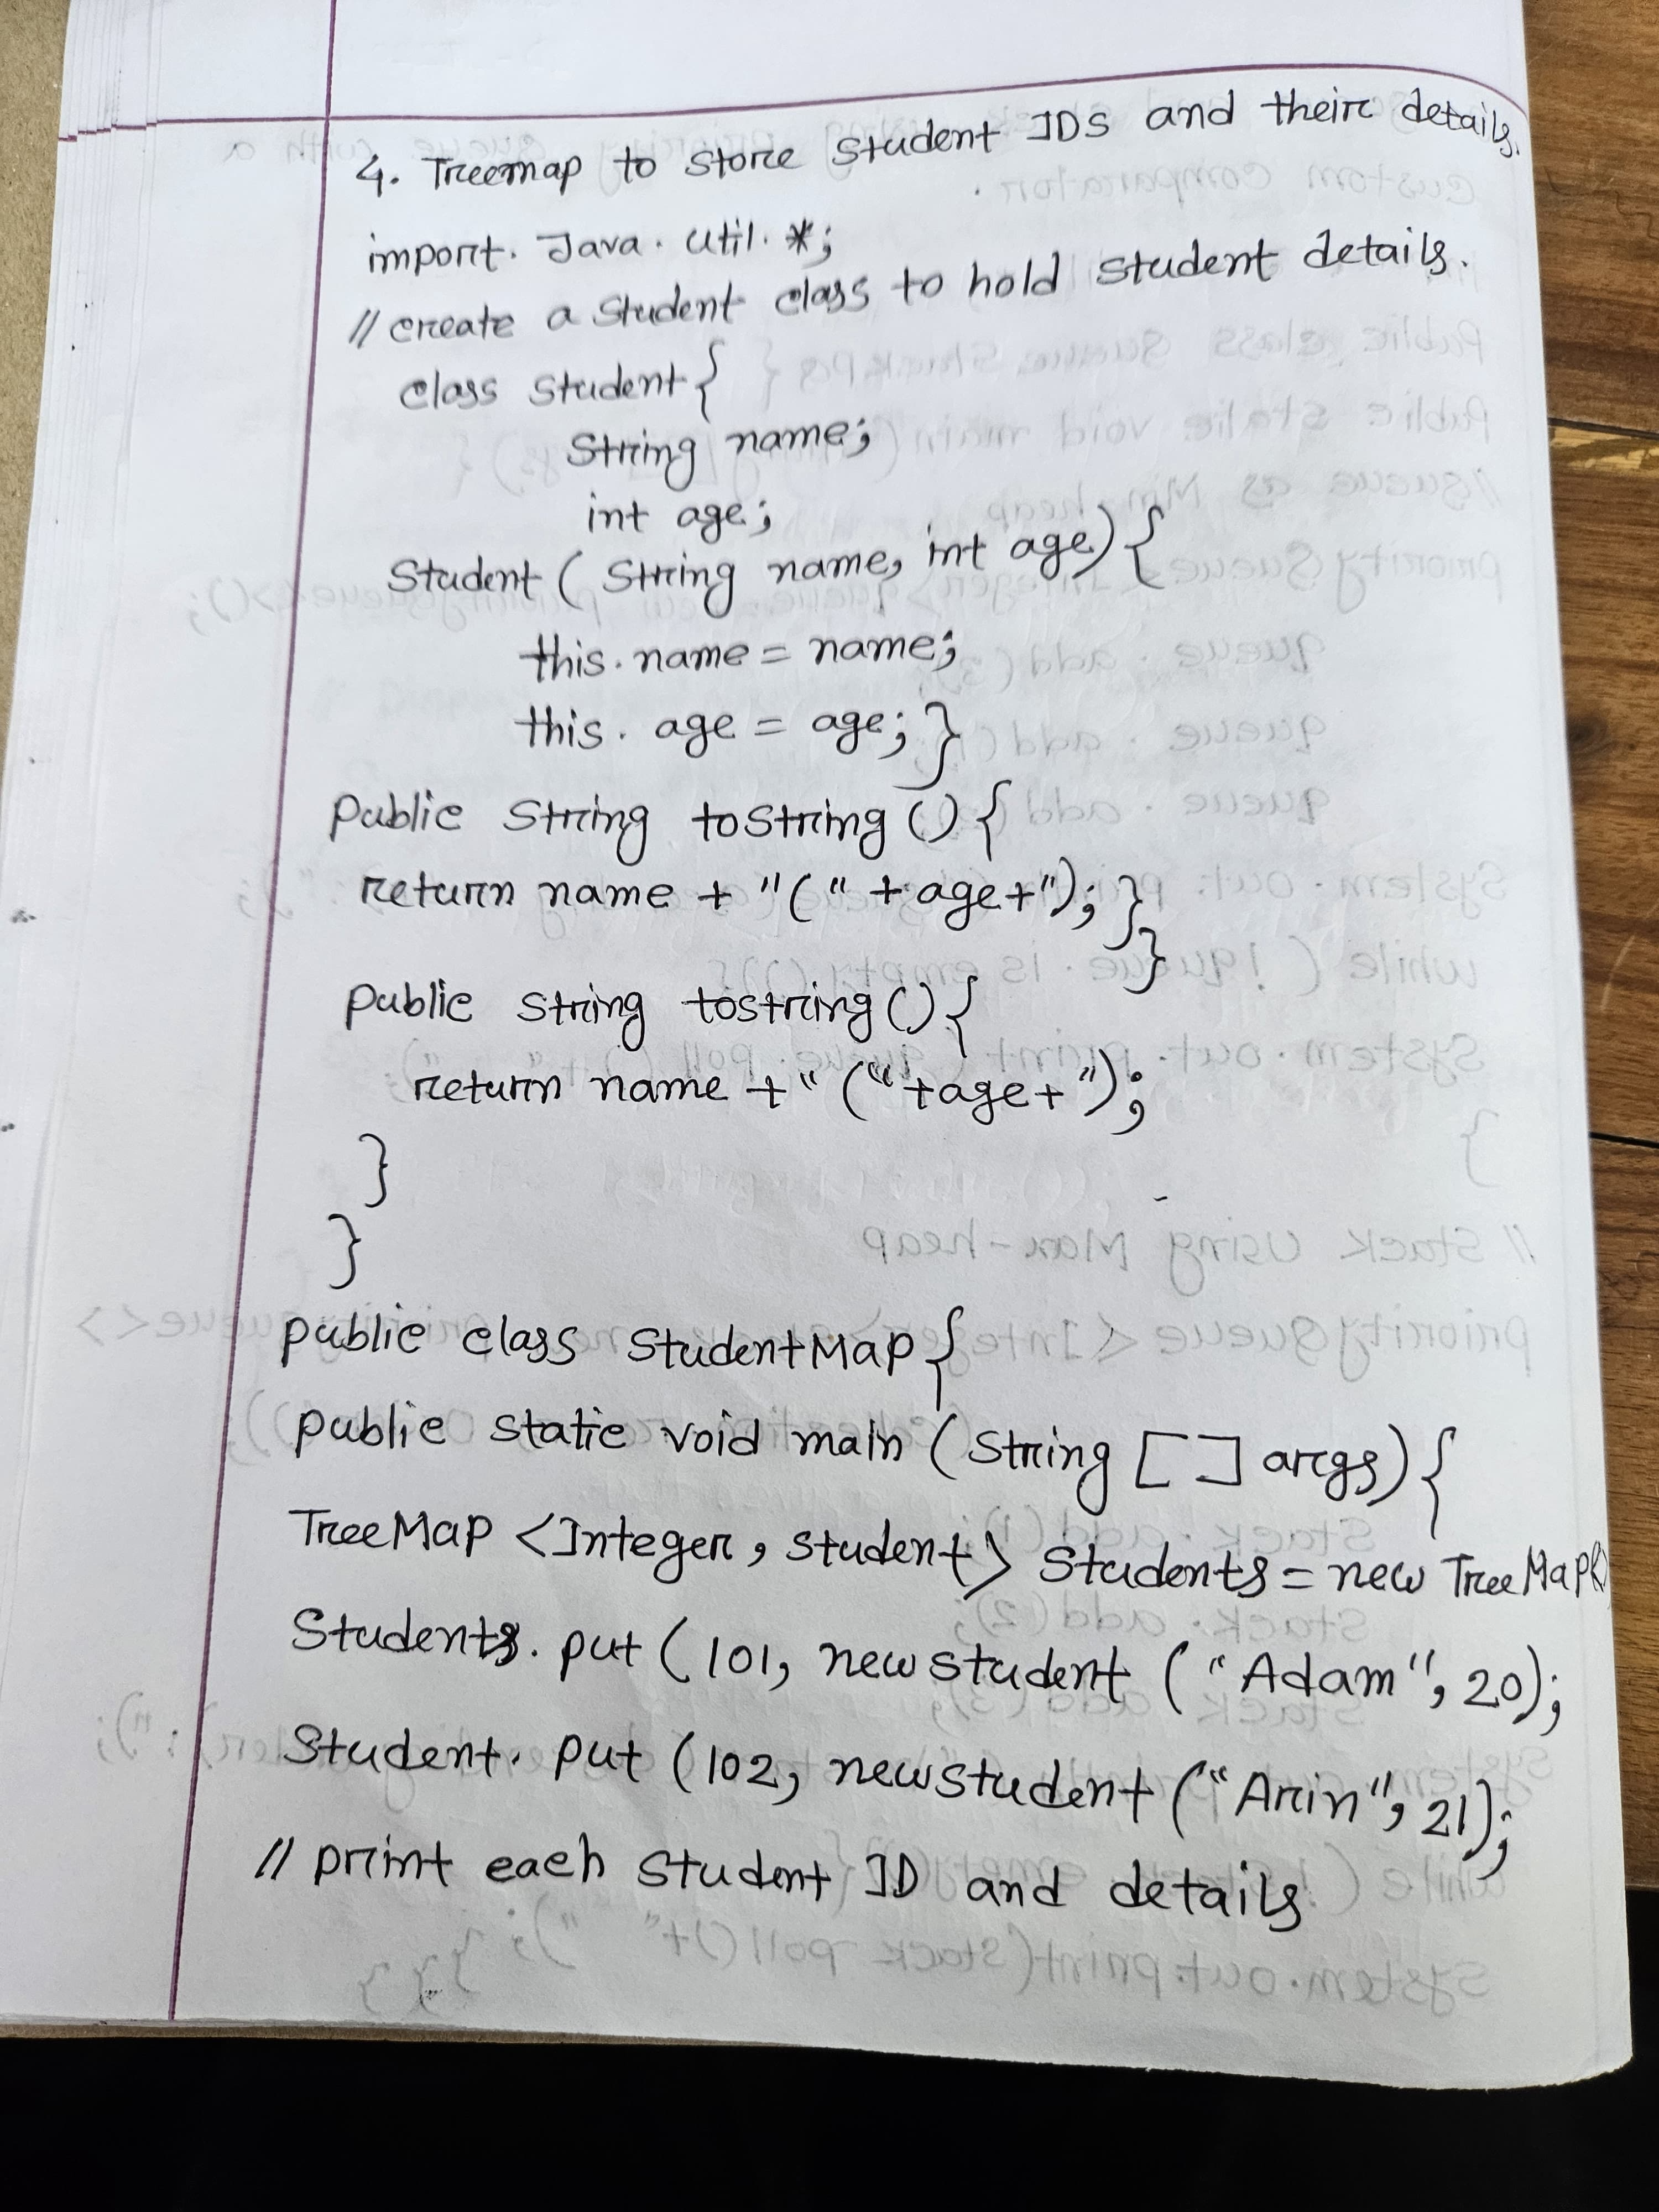 4. Treemap to store student IDS and their details.
import. Java. util. *;
// create a student class to hold student details.
class student {
String name;
int age;
Student ( String name, int age) {
this. name = name;
this. age = age; }
public String toString () {
return name + "(" + age+"); }
}
public string tostring () {
return name + " (" +age+ ");
}
}
public class StudentMap {
public static void main ( String [ ] args) {
TreeMap <Integer, student> Students = new TreeMap()
Students. put ( 101, new student ( "Adam", 20);
Student. put (102, new student ("Arin", 21);
// print each student ID and details